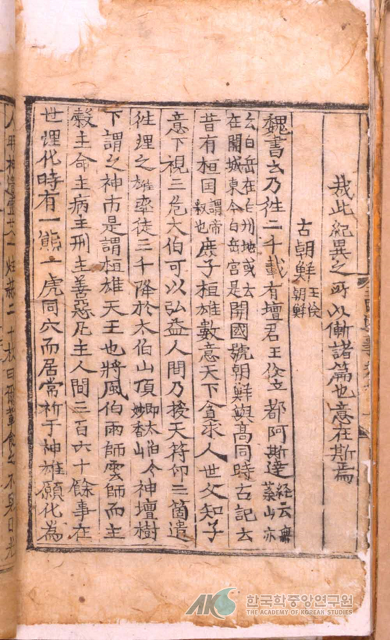 哉此紀異之所以慚諸篇也意在斯焉
古朝鮮王儉朝鮮
魏書云乃徃二千載有壇君王儉立都阿斯達經云無葉山亦
云白岳在白州地或云在開城東今白岳宮是開國號朝鮮與高同時古記云
昔有桓国謂帝釋也庶子桓雄數意天下貪求人世父知子
意下視三危太伯可以弘益人間乃授天符印三箇遣
徃理之雄率徒三千降於太伯山頂即太伯今妙香山神壇樹
下謂之神市是謂桓雄天王也將風伯雨師雲師而主
糓主命主病主刑主善惡凡主人間三百六十餘事在
世理化時有一熊一虎同穴而居常祈于神雄願化為
AKS 한국학중앙연구원
THE ACADEMY OF KOREAN STUDIES